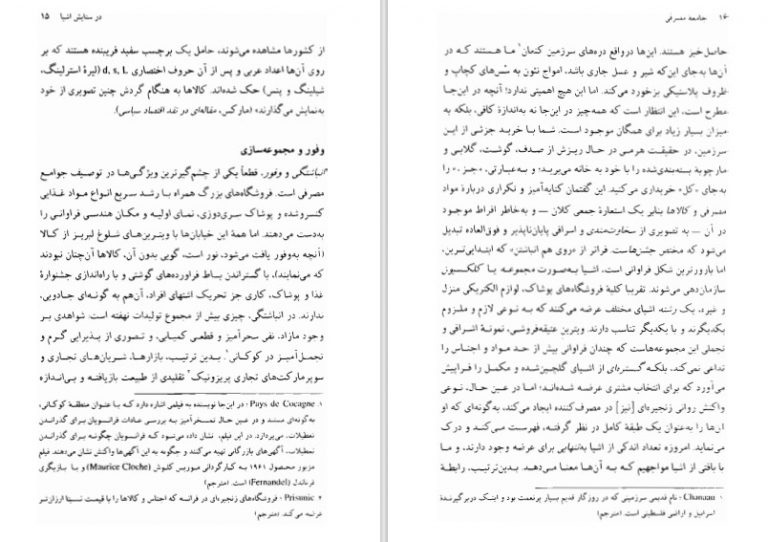 در ستایش اشیا ۱۵
از کشورها مشاهده می‌شوند، حامل یک برچسب سفید فریبنده هستند که بر
روی آن‌ها اعداد عربی و پس از آن حروف اختصاری d, s, L (لیرهٔ استرلینگ،
شیلینگ و پنس) حک شده‌اند. کالاها به هنگام گردش چنین تصویری از خود
به‌نمایش می‌گذارند» (مارکس، مقاله‌ای در نقد اقتصاد سیاسی).
وفور و مجموعه‌سازی
انباشتگی و وفور، قطعاً یکی از چشم‌گیرترین ویژگی‌ها در توصیف جوامع
مصرفی است. فروشگاه‌های بزرگ همراه با رشد سریع انواع مواد غذایی
کنسروشده و پوشاک سری‌دوزی، نمای اولیه و مکان هندسی فراوانی را
به‌دست می‌دهند. اما همهٔ این خیابان‌ها با ویترین‌های شلوغ لبریز از کالا
(آنچه به‌وفور یافت می‌شود، نور است، گویی بدون آن، کالاها آن‌چنان نبودند
که می‌نمایند)، با گستراندن بساط فراورده‌های گوشتی و با راه‌اندازی جشنوارهٔ
غذا و پوشاک، کاری جز تحریک اشتهای افراد، آن‌هم به گونه‌ای جادویی،
ندارند. در انباشتگی، چیزی بیش از مجموع تولیدات نهفته است: شواهدی بر
وجود مازاد، نفی سحرآمیز و قطعی کمیابی، و تصوری از پذیرایی گرم و
تجمل‌آمیز در کوکانی۱. بدین ترتیب، بازارها، شریان‌های تجاری و
سوپرمارکت‌های تجاری پریزونیک۲ تقلیدی از طبیعت بازیافته و بی‌اندازه
۱. Pays de Cocagne: در این‌جا نویسنده به فیلمی اشاره دارد که با عنوان منطقهٔ کوکانی،
به‌گونه‌ای مستند و در عین حال تمسخرآمیز به بررسی عادات فرانسویان برای گذراندن
تعطیلات، می‌پردازد. در این فیلم، نشان داده می‌شود که فرانسویان چگونه برای گذراندن
تعطیلات، آگهی‌های بازرگانی تهیه می‌کنند و چگونه به این آگهی‌ها واکنش نشان می‌دهند. فیلم
مزبور محصول ۱۹۶۱ به کارگردانی موریس کلوش (Maurice Cloche) و با بازیگری
فرناندل (Fernandel) است. (مترجم)
۲. Prisunic: فروشگاه‌های زنجیره‌ای در فرانسه که اجناس و کالاها را با قیمت نسبتاً ارزان‌تر
عرضه می‌کند. (مترجم)
۱۶ جامعهٔ مصرفی
حاصل‌خیز هستند. این‌ها درواقع دره‌های سرزمین کنعان۱ ما هستند که در
آن‌ها به‌جای این‌که شیر و عسل جاری باشد، امواج نئون به سس‌های کچاپ و
ظروف پلاستیکی برخورد می‌کند. اما این هیچ اهمیتی ندارد؛ آنچه در این‌جا
مطرح است، این انتظار است که همه‌چیز در این‌جا نه به‌اندازهٔ کافی، بلکه به
میزان بسیار زیاد برای همگان موجود است. شما با خرید جزئی از این
سرزمین، در حقیقت هرمی در حال ریزش از صدف، گوشت، گلابی و
مارچوبهٔ بسته‌بندی‌شده را با خود به خانه می‌برید؛ و به‌عبارتی، «جز.» را
به‌جای «کل» خریداری می‌کنید. این گفتمان کنایه‌آمیز و تکراری دربارهٔ مواد
مصرفی و کالاها بنابر یک استعارهٔ جمعی کلان — و به‌خاطر افراط موجود
در آن — به تصویری از سخاوت‌مندی و اسرافی پایان‌ناپذیر و فوق‌العاده تبدیل
می‌شود که مختص جشن‌هاست. فراتر از «روی هم انباشتن» که ابتدایی‌ترین،
اما بارورترین شکل فراوانی است، اشیا به‌صورت مجموعه یا کلکسیون
سازمان‌دهی می‌شوند. تقریبا کلیهٔ فروشگاه‌های پوشاک، لوازم الکتریکی منزل
و غیره، یک رشته اشیای مختلف عرضه می‌کنند که به نوعی لازم و ملزوم
یکدیگرند و با یکدیگر تناسب دارند. ویترین عتیقه‌فروشی، نمونهٔ اشرافی و
تجملی این مجموعه‌هاست که چندان فراوانی بیش از حد مواد و اجناس را
تداعی نمی‌کند، بلکه گستره‌ای از اشیای گلچین‌شده و مکمل را فراپیش
می‌آورد که برای انتخاب مشتری عرضه شده‌اند؛ اما در عین حال، نوعی
واکنش روانی زنجیره‌ای [نیز] در مصرف‌کننده ایجاد می‌کند، به‌گونه‌ای که او
آن‌ها را به‌عنوان یک طبقهٔ کامل در نظر گرفته، فهرست می‌کند و درک
می‌نماید. امروزه تعداد اندکی از اشیا به‌تنهایی برای عرضه وجود دارند، و ما
با بافتی از اشیا مواجهیم که به آن‌ها معنا می‌دهد. بدین‌ترتیب، رابطهٔ
۱. Chanaan: نام قدیمی سرزمینی که در روزگار قدیم بسیار پرنعمت بود و اینک دربرگیرندهٔ
اسراییل و اراضی فلسطینی است. (مترجم)